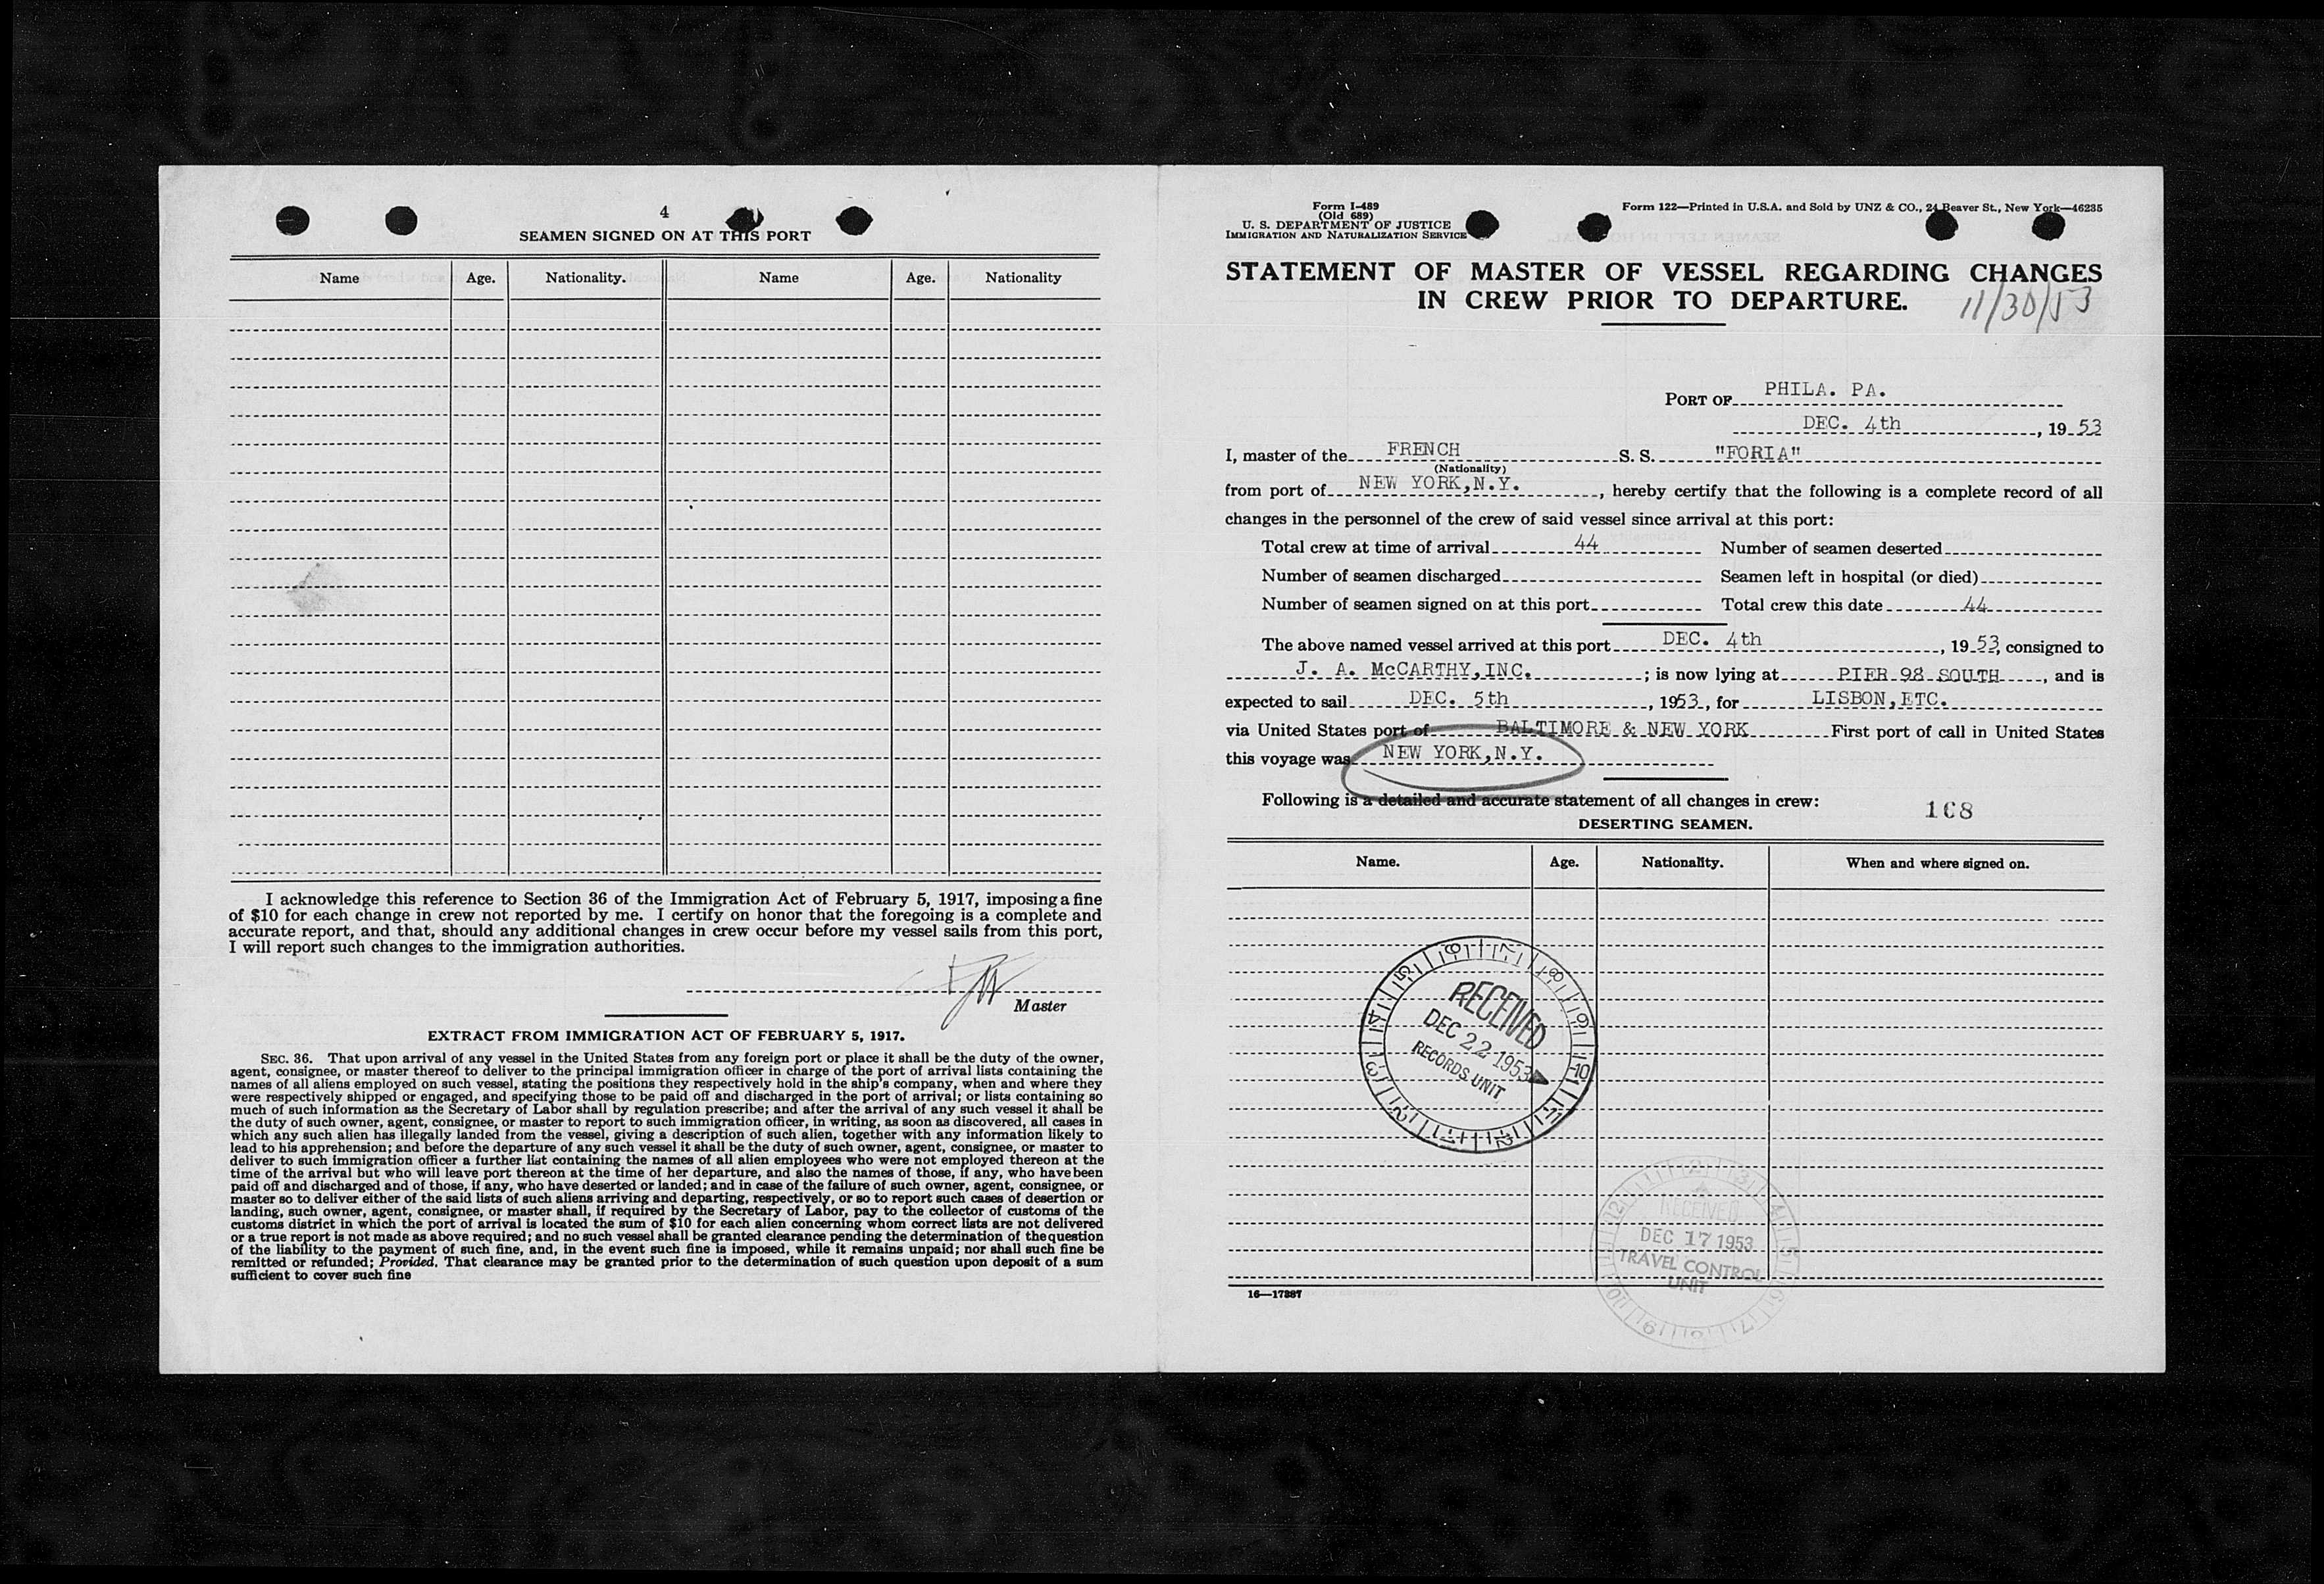 4
SEAMEN SIGNED ON AT THIS PORT
Name Age. Nationality. Name Age. Nationality
I acknowledge this reference to Section 36 of the Immigration Act of February 5, 1917, imposing a fine
of $10 for each change in crew not reported by me. I certify on honor that the foregoing is a complete and
accurate report, and that, should any additional changes in crew occur before my vessel sails from this port,
I will report such changes to the immigration authorities.
Master
EXTRACT FROM IMMIGRATION ACT OF FEBRUARY 5, 1917.
SEC. 36. That upon arrival of any vessel in the United States from any foreign port or place it shall be the duty of the owner,
agent, consignee, or master thereof to deliver to the principal immigration officer in charge of the port of arrival lists containing the
names of all aliens employed on such vessel, stating the positions they respectively hold in the ship's company, when and where they
were respectively shipped or engaged, and specifying those to be paid off and discharged in the port of arrival; or lists containing so
much of such information as the Secretary of Labor shall by regulation prescribe; and after the arrival of any such vessel it shall be
the duty of such owner, agent, consignee, or master to report to such immigration officer, in writing, as soon as discovered, all cases in
which any such alien has illegally landed from the vessel, giving a description of such alien, together with any information likely to
lead to his apprehension; and before the departure of any such vessel it shall be the duty of such owner, agent, consignee, or master to
deliver to such immigration officer a further list containing the names of all alien employees who were not employed thereon at the
time of the arrival but who will leave port thereon at the time of her departure, and also the names of those, if any, who have been
paid off and discharged and of those, if any, who have deserted or landed; and in case of the failure of such owner, agent, consignee, or
master so to deliver either of the said lists of such aliens arriving and departing, respectively, or so to report such cases of desertion or
landing, such owner, agent, consignee, or master shall, if required by the Secretary of Labor, pay to the collector of customs of the
customs district in which the port of arrival is located the sum of $10 for each alien concerning whom correct lists are not delivered
or a true report is not made as above required; and no such vessel shall be granted clearance pending the determination of the question
of the liability to the payment of such fine, and, in the event such fine is imposed, while it remains unpaid; nor shall such fine be
remitted or refunded; Provided, That clearance may be granted prior to the determination of such question upon deposit of a sum
sufficient to cover such fine
Form I-489
(Old 689)
U. S. DEPARTMENT OF JUSTICE
IMMIGRATION AND NATURALIZATION SERVICE
Form 122—Printed in U.S.A. and Sold by UNZ & CO., 24 Beaver St., New York—46235
STATEMENT OF MASTER OF VESSEL REGARDING CHANGES
IN CREW PRIOR TO DEPARTURE.
11/30/53
PORT OF PHILA. PA.
DEC. 4th, 19 53
I, master of the FRENCH S. S. "FORIA"
(Nationality)
from port of NEW YORK,N.Y., hereby certify that the following is a complete record of all
changes in the personnel of the crew of said vessel since arrival at this port:
Total crew at time of arrival 44 Number of seamen deserted
Number of seamen discharged Seamen left in hospital (or died)
Number of seamen signed on at this port Total crew this date 44
The above named vessel arrived at this port DEC. 4th, 19 53, consigned to
J. A. McCARTHY,INC.; is now lying at PIER 98 SOUTH, and is
expected to sail DEC. 5th, 1953, for LISBON,ETC.
via United States port of BALTIMORE & NEW YORK First port of call in United States
this voyage was NEW YORK,N.Y.
Following is a detailed and accurate statement of all changes in crew:
168
DESERTING SEAMEN.
Name. Age. Nationality. When and where signed on.
RECEIVED
DEC 22 1953
RECORDS UNIT
RECEIVED
DEC 17 1953
TRAVEL CONTROL
UNIT
16—17387